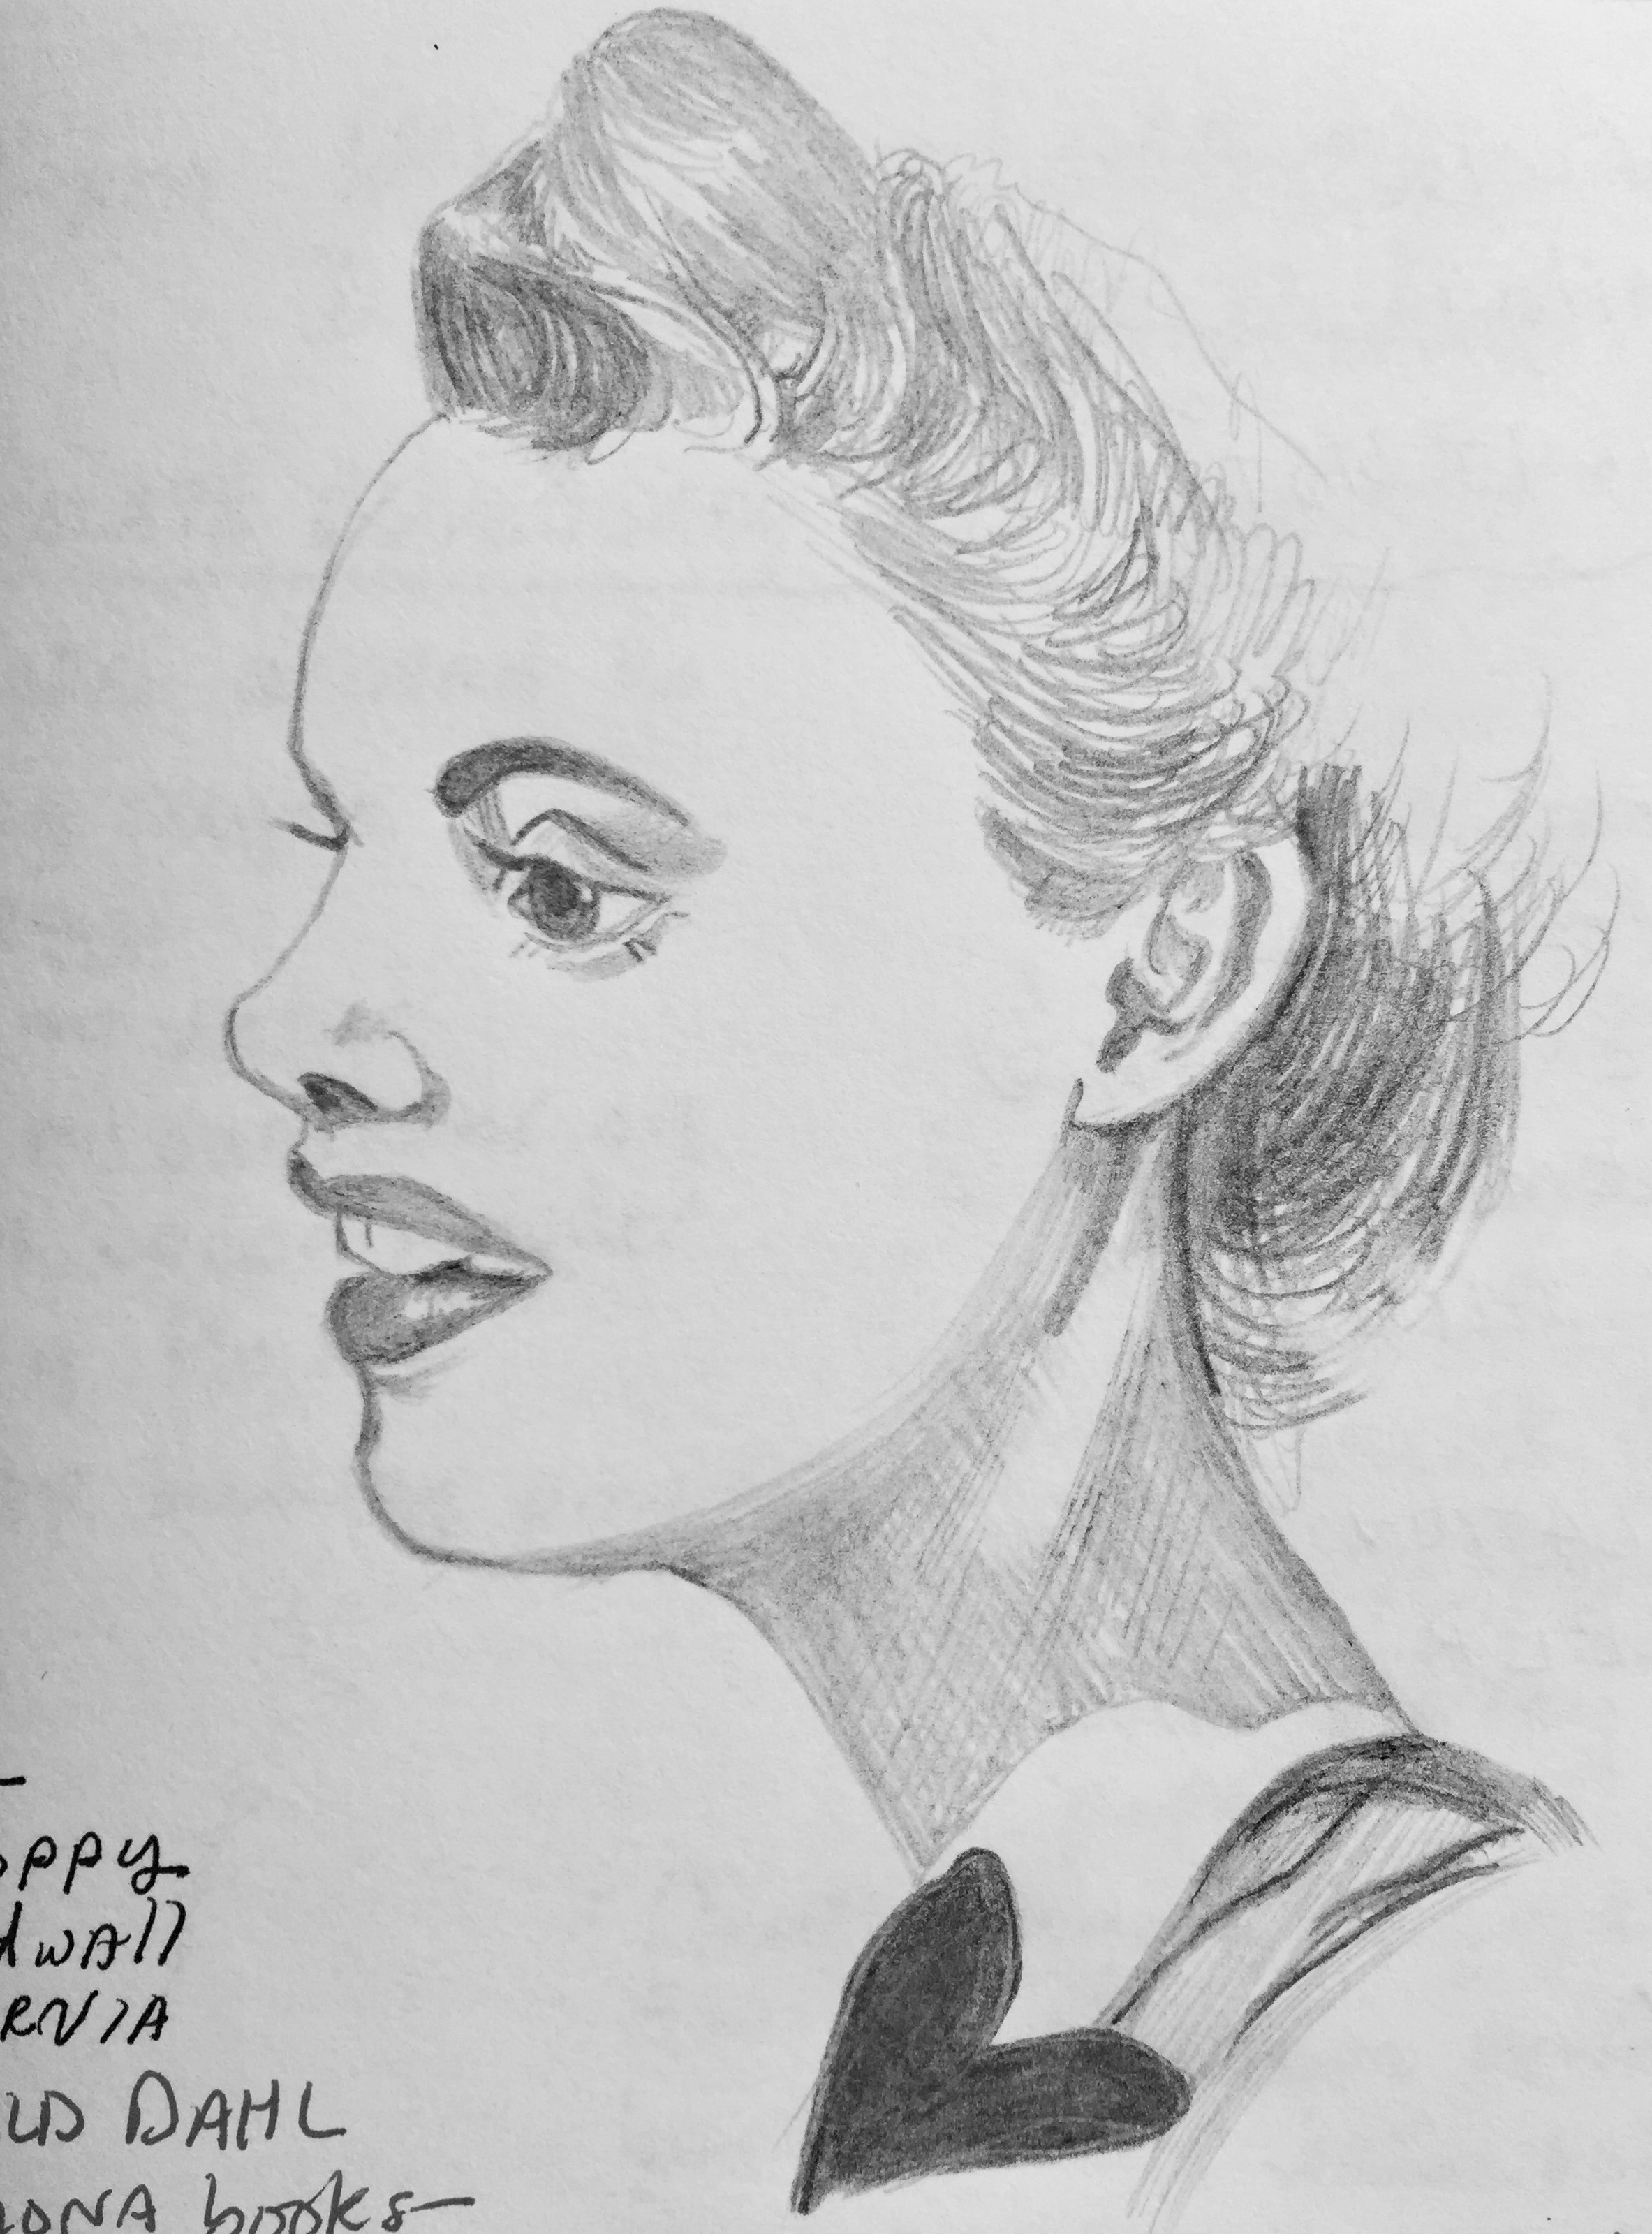 oppy
dwAll
RNIA
LD DAHL
ONA books—